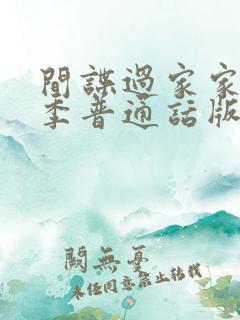 間諜過家家
季普通話版
闕無憂
未經同意禁止轉載